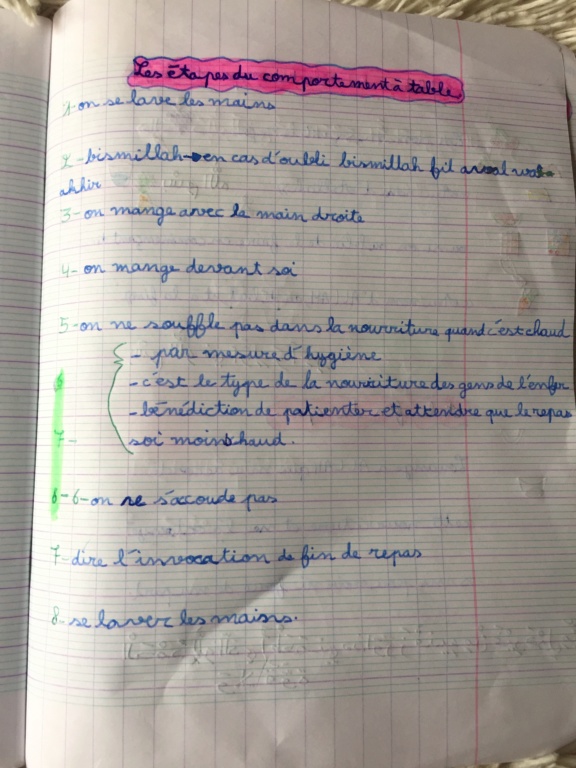 Les étapes du comportement à table
1-on se lave les mains
2-bismillah→en cas d'oubli bismillah fil awal wal
akhir
3-on mange avec la main droite
4-on mange devant soi
5-on ne souffle pas dans la nourriture quand c'est chaud
- par mesure d'hygiène
- c'est le type de la nourriture des gens de l'enfer
- bénédiction de patienter et attendre que le repas
7- soi moins chaud.
6-6-on ne s'acoude pas
7-dire l'invocation de fin de repas
8-se laver les mains.